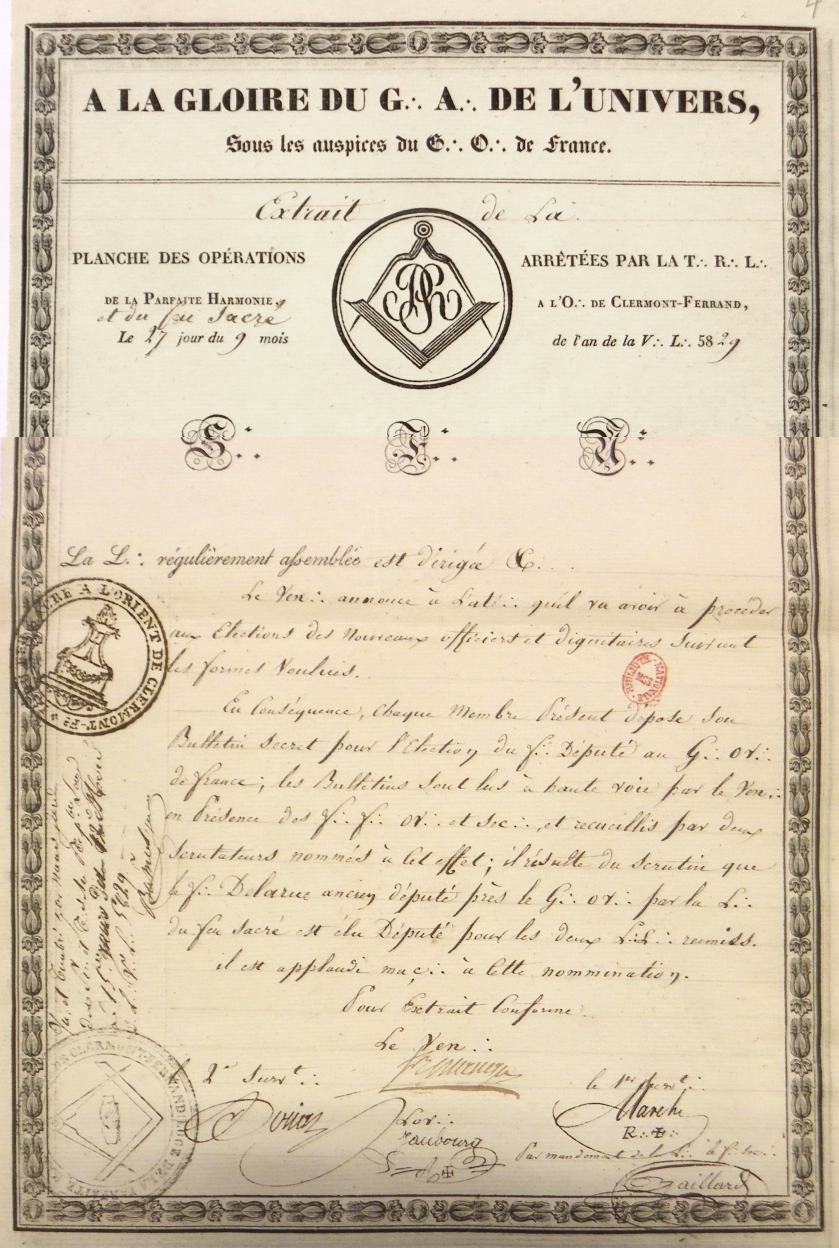 A LA GLOIRE DU G∴ A∴ DE L'UNIVERS,
Sous les auspices du G∴ O∴ de France.
Extrait de La
PLANCHE DES OPÉRATIONS ARRÊTÉES PAR LA T∴ R∴ L∴
DE LA PARFAITE HARMONIE, A L'O∴ DE CLERMONT-FERRAND,
et du feu Sacré
Le 27 jour du 9 mois de l'an de la V∴ L∴ 5829
S∴ F∴ U∴
La L∴ régulièrement assemblée est dirigée &...
Le Ven∴ annonce à L'att∴ qu'il va avoir à procéder
aux Elections des Nouveaux officiers et dignitaires suivant
les formes Voulues.
En Conséquence, Chaque Membre Présent dépose son
Bulletin Secret pour l'Election du f∴ Député au G∴ Or∴
de france; les Bulletins sont lus à haute voie par le Ven∴
en Présence des f. f. or∴ et sec∴, et recueillis par deux
Scrutateurs nommés à Cet effet; il résulte du scrutin que
le f∴ Delarue ancien député près le G∴ or∴ par la L∴
du feu sacré est élu Député pour les deux L∴L∴ réunis.
il est applaudi maç∴ à Cette nommination.
Pour Extrait Conforme
Le Ven∴
2e Survt∴
le 1er Survt∴
L'or∴
Faubourg
Marche
R∴ ✠∴
Par mandement de la L∴ le f∴ sec∴
Gaillard
A L'ORIENT DE CLERMONT-Fd
5829